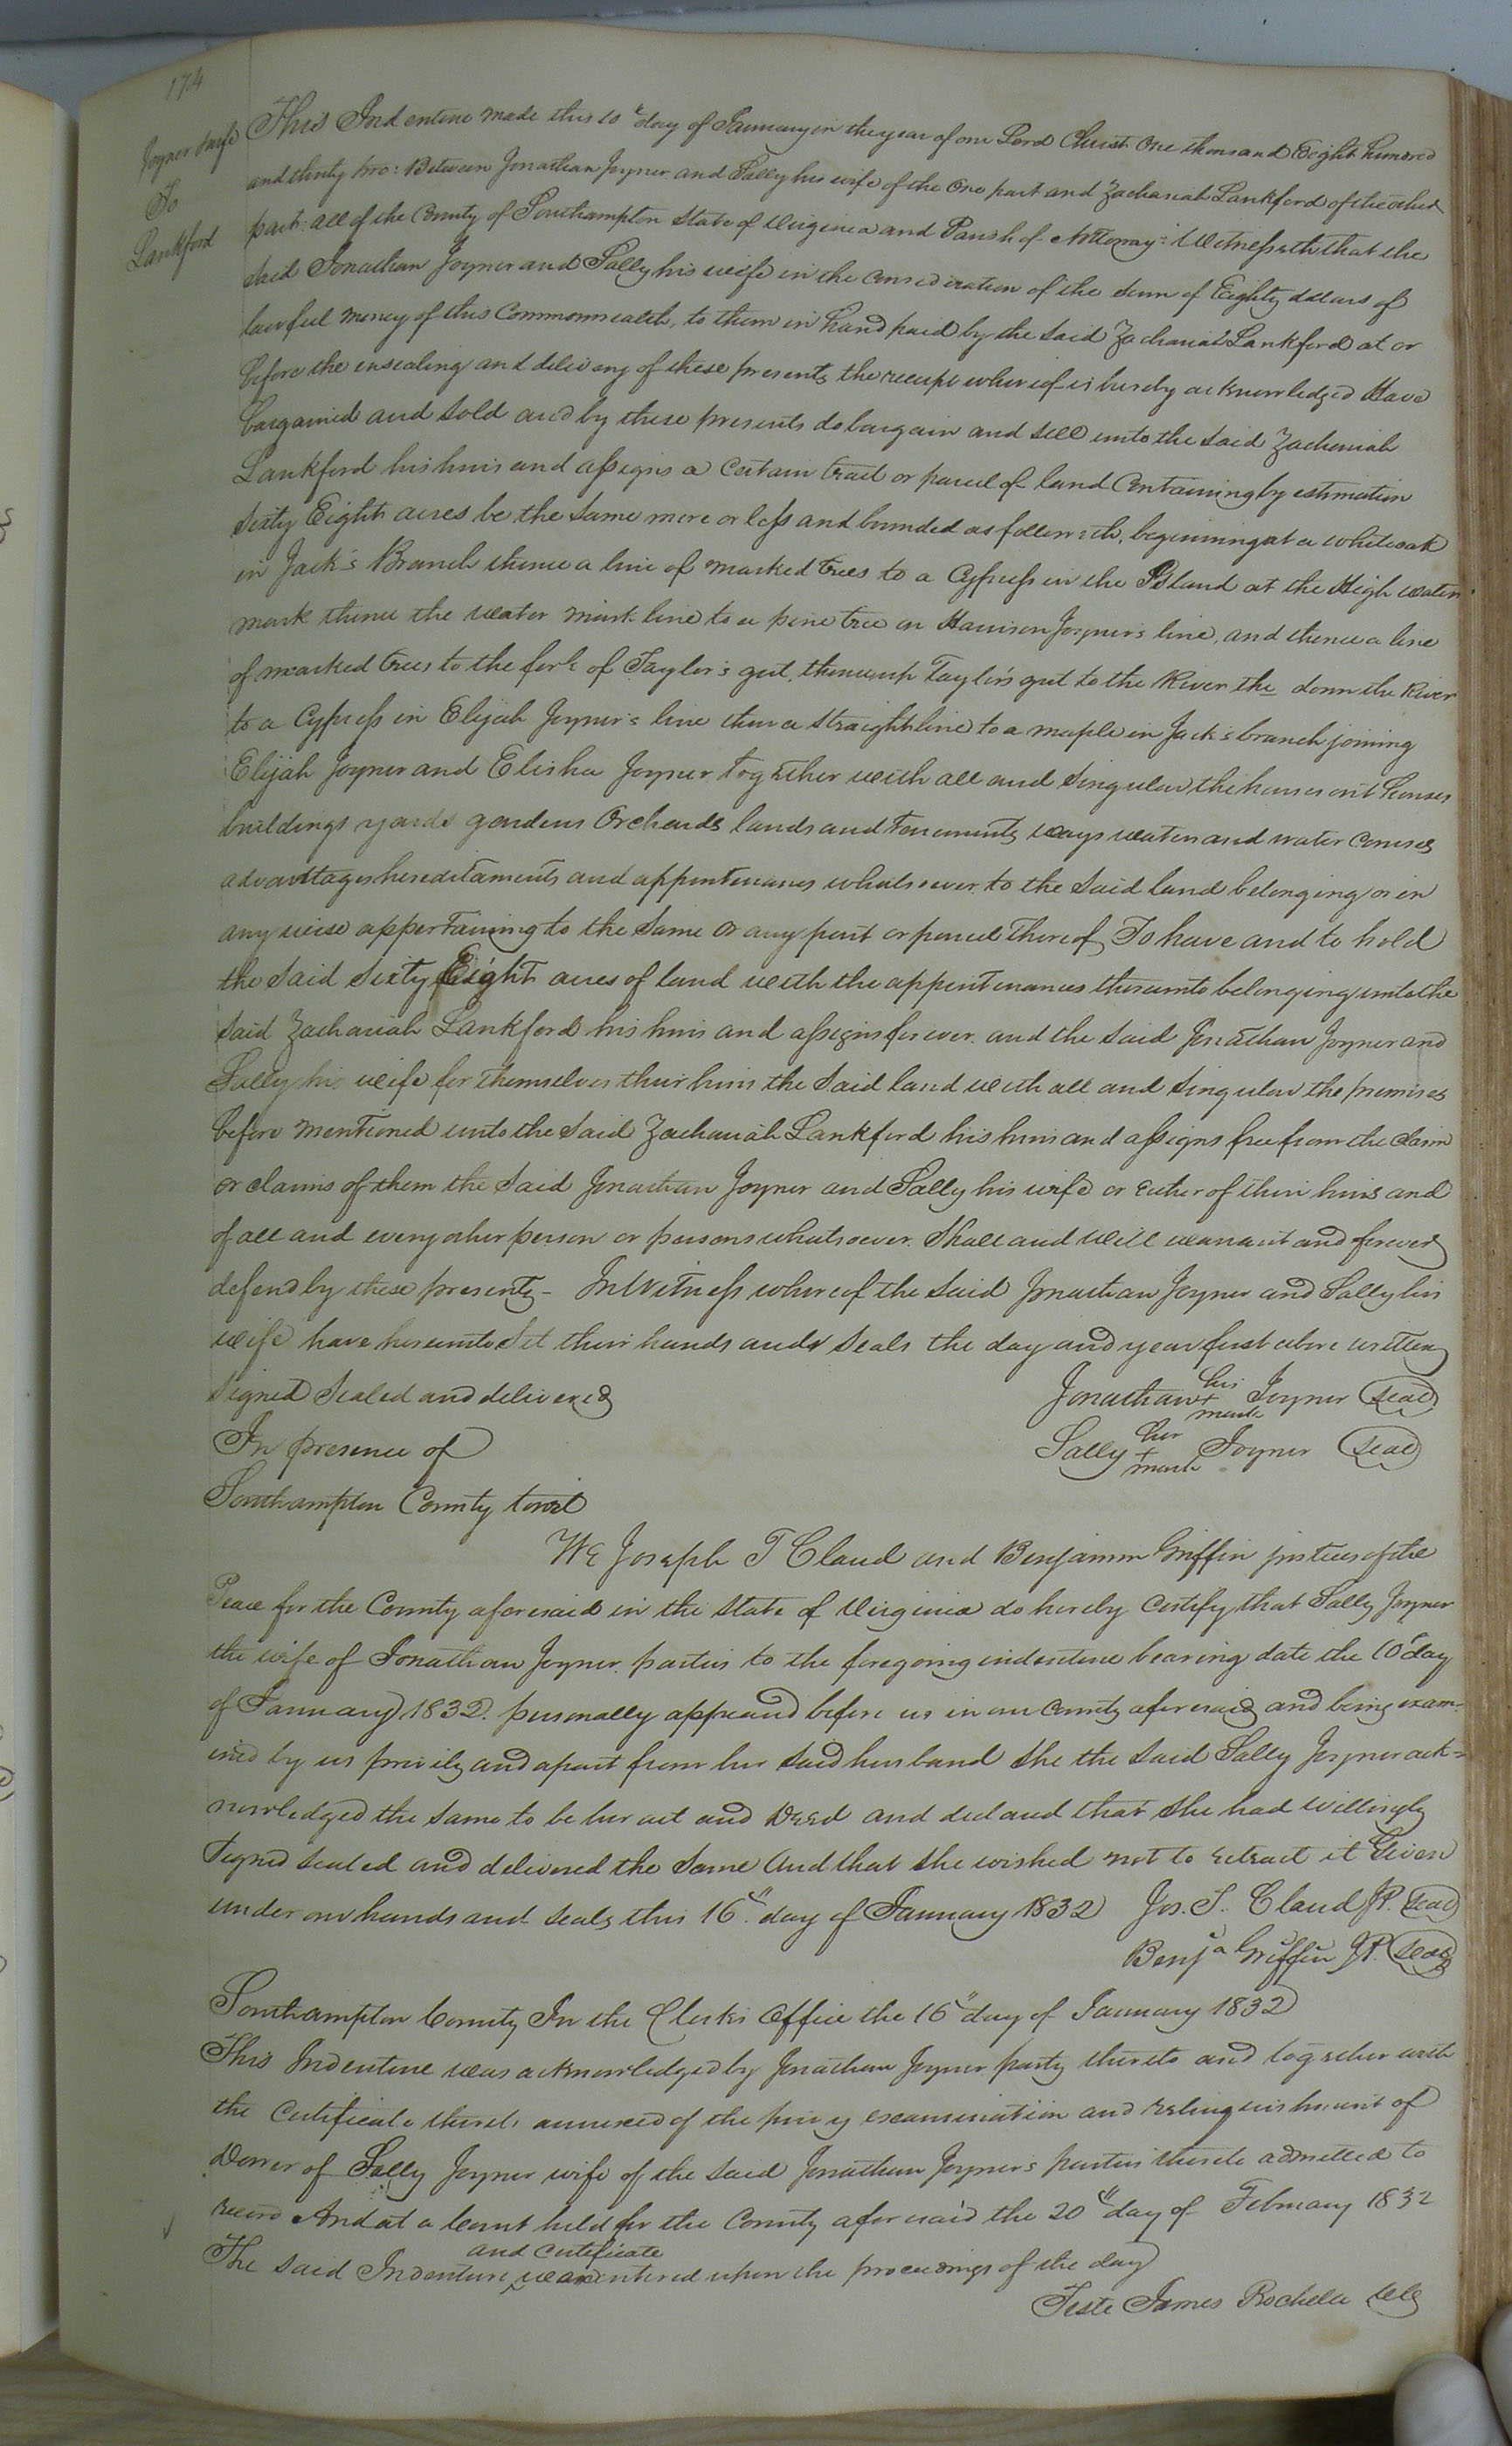 174
Joyner & wife
To
Lankford
This Indenture made this 10th day of January in the year of our Lord Christ One thousand Eight hundred
and thirty two: Between Jonathan Joyner and Sally his wife of the One part and Zachariah Lankford of the other
part: all of the County of Southampton State of Virginia and Parish of Nottoway: Witnesseth that the
said Jonathan Joyner and Sally his wife in the consideration of the sum of Eighty dollars of
lawful money of this Commonwealth, to them in hand paid by the said Zachariah Lankford at or
before the ensealing and delivery of these presents, the receipt whereof is hereby acknowledged Have
bargained and sold and by these presents do bargain and sell unto the said Zachariah
Lankford his heirs and assigns a certain tract or parcel of land Containing by estimation
Sixty Eight acres be the same more or less and bounded as followeth, beginning at a white oak
in Jack's Branch thence a line of marked trees to a Cypress in the Island at the High water
mark thence the water mark line to a pine tree on Harrison Joyner's line, and thence a line
of marked trees to the fork of Taylor's gut, thence up Taylor's gut to the River the down the River
to a Cypress in Elijah Joyner's line then a straight line to a maple in Jack's branch joining
Elijah Joyner and Elisha Joyner together with all and singular the houses out houses
buildings yards gardens Orchards lands and tenements, ways waters and water courses
advantages hereditaments and appurtenances whatsoever to the said land belonging or in
any wise appertaining to the same or any part or parcel thereof To have and to hold
the said Sixty Eight acres of land with the appurtenances thereunto belonging unto the
said Zachariah Lankford his heirs and assigns forever. and the said Jonathan Joyner and
Sally his wife for themselves their heirs the said land with all and singular the premises
before mentioned unto the said Zachariah Lankford his heirs and assigns free from the claim
or claims of them the said Jonathan Joyner and Sally his wife or either of their heirs and
of all and every other person or persons whatsoever. Shall and will warrant and forever
defend by these presents - In Witness whereof the said Jonathan Joyner and Sally his
wife have hereunto set their hands and seals the day and year first above written
Signed Sealed and delivered Jonathan his + mark Joyner (seal)
In presence of Sally her + mark Joyner (seal)
Southampton County towit
We Joseph T Claud and Benjamin Griffin justices of the
Peace for the County aforesaid in the State of Virginia do hereby certify that Sally Joyner
the wife of Jonathan Joyner parties to the foregoing indenture bearing date the 10th day
of January 1832. personally appeared before us in our County aforesaid and being exam-
ined by us privily and apart from her said husband she the said Sally Joyner ack=
nowledged the same to be her act and Deed and declared that she had willingly
signed sealed and delivered the same And that she wished not to retract it Given
under our hands and seals this 16th day of January 1832 Jos. T. Claud JP. (seal)
Benja Griffin JP. (seal)
Southampton County In the Clerks Office the 16th day of January 1832
This Indenture was acknowledged by Jonathan Joyner party thereto and together with
the Certificate thereto annexed of the privy examination and relinquishment of
Dower of Sally Joyner wife of the said Jonathan Joyner's parties thereto admitted to
record And at a Court held for the County aforesaid the 20th day of February 1832
and certificate
The said Indenture was entered upon the proceedings of the day
Teste James Rochelle